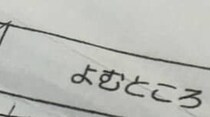 よむところ